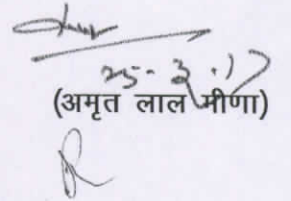 25-3-17
(अमृत लाल मीणा)